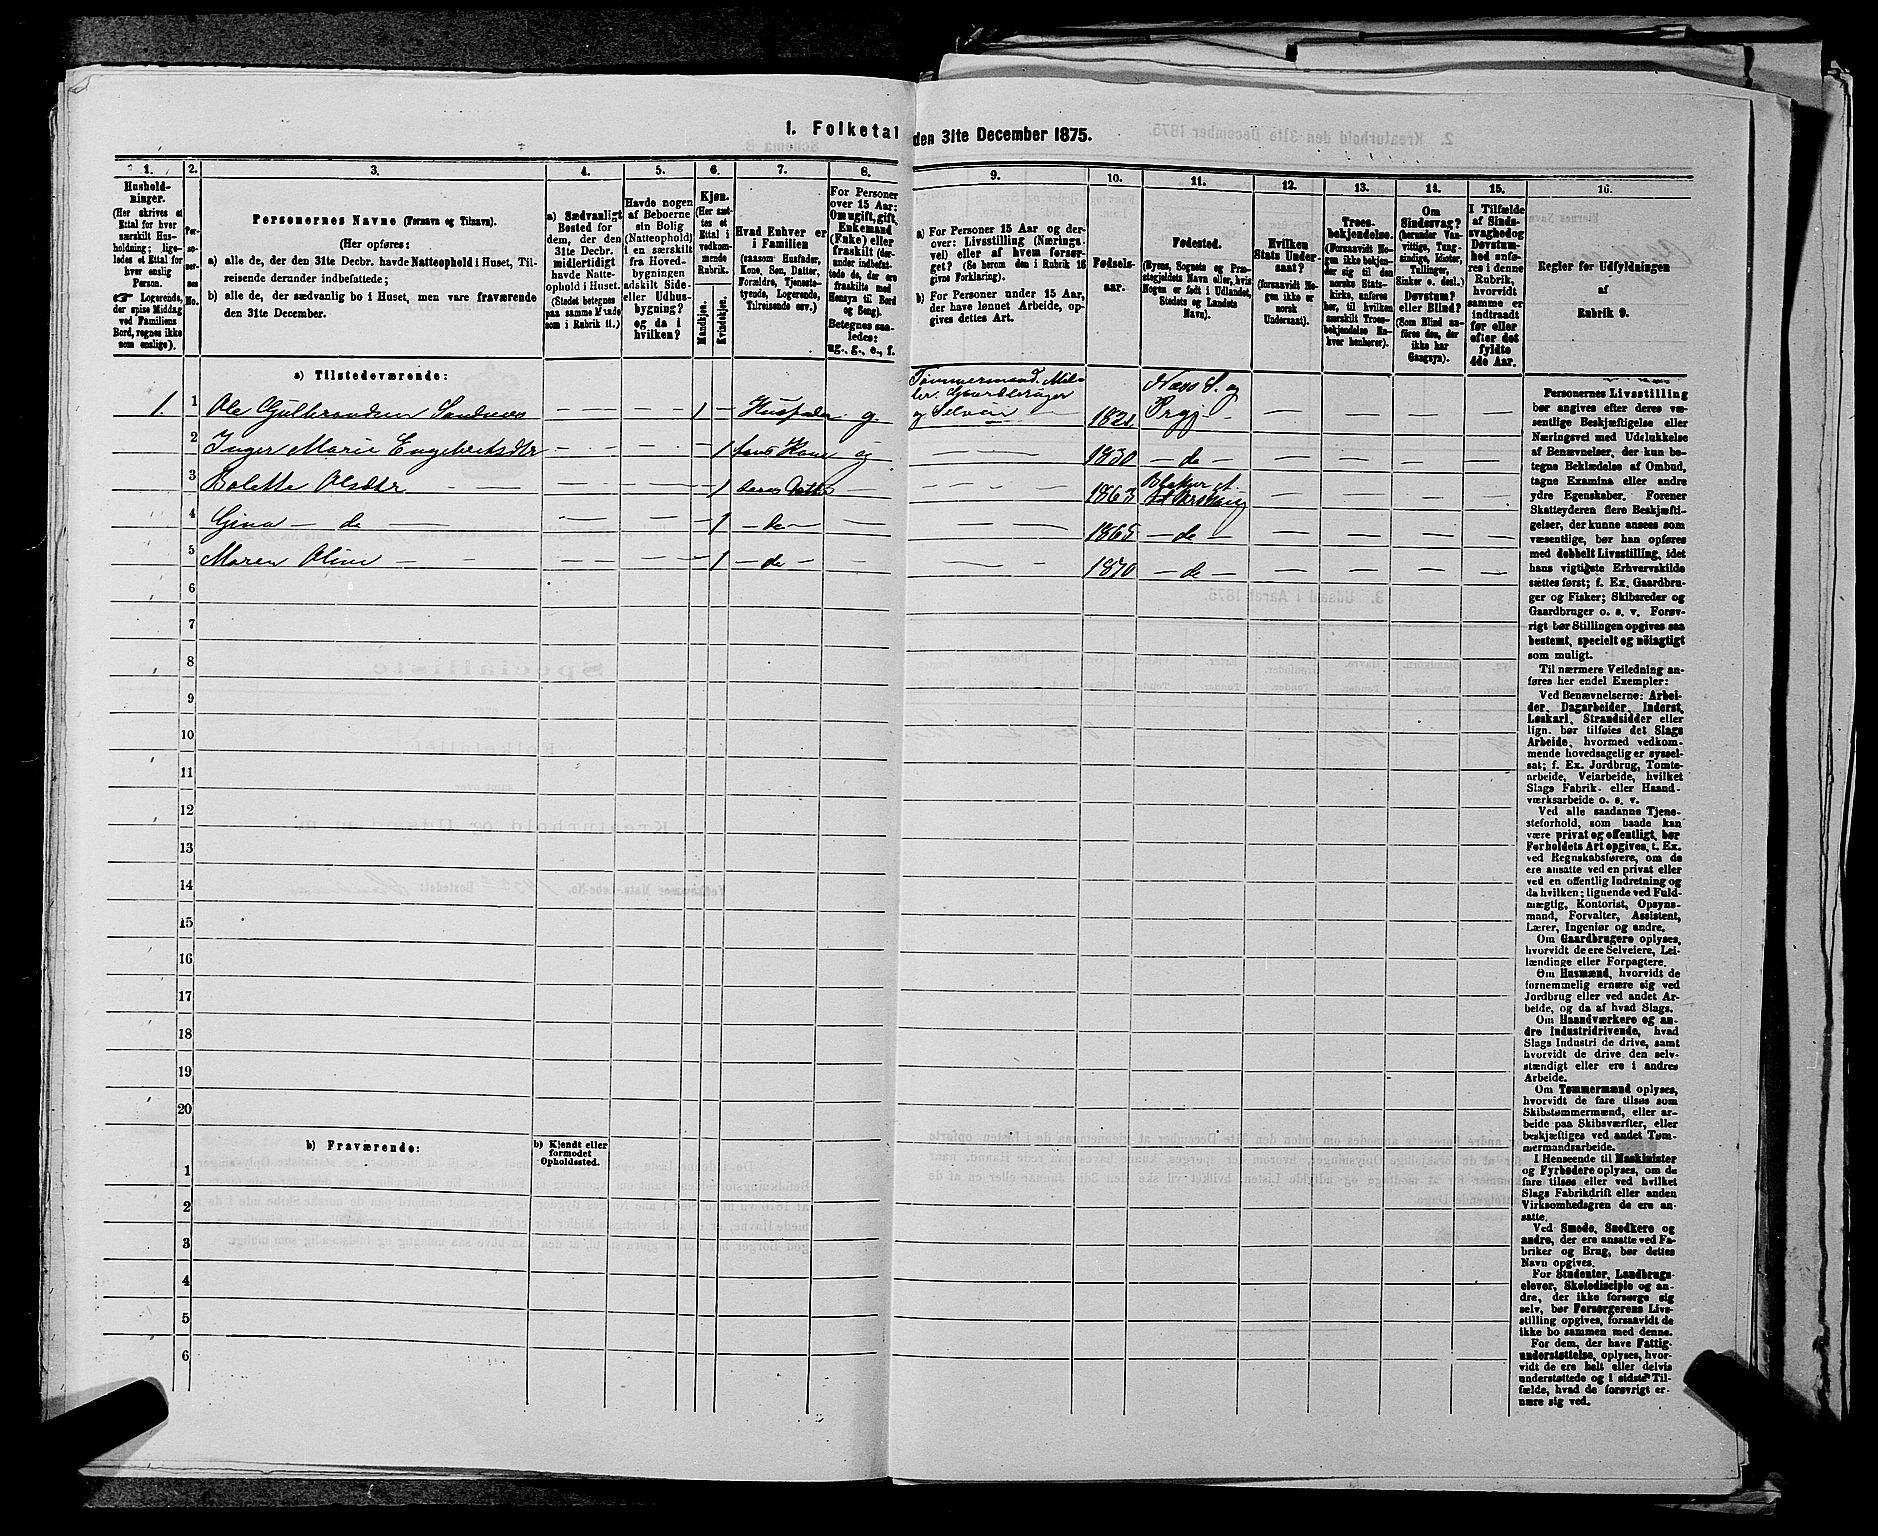 1. Folketal den 31te December 1875.
1. 2. 3. 4. 5. 6. 7. 8. 9. 10. 11. 12. 13. 14. 15. 16.
Husholdninger.
(Her skrives et
Ettal for hver
særskilt Husholdning;
ligeledes et Ettal for
hver enslig
Person.
☞ Logerende,
der spise Middag
ved Familiens
Bord, regnes ikke
som enslige).
Personernes No.
Personernes Navne (Fornavn og Tilnavn).
(Her opføres:
a) alle de, der den 31te Decbr. havde Natteophold i Huset, Tilreisende derunder indbefattede;
b) alle de, der sædvanlig bo i Huset, men vare fraværende
den 31te December.
a) Sædvanligt
Bosted for
dem, der den
31te Decbr.
midlertidigt
havde Natteophold i Huset.
(Stedet betegnes
paa samme Maade
som i Rubrik 11.)
Havde nogen
af Beboerne
sin Bolig
(Natteophold)
i en særskilt
fra Hovedbygningen
adskilt Side-
eller Udhusbygning?
og da i
hvilken?
Kjøn.
(Her sættes et
Ettal i
vedkommende
Rubrik.
Mandkjøn.
Kvindekjøn.
Hvad Enhver er
i Familien
(saasom Husfader,
Kone, Søn, Datter,
Forældre, Tjenestetyende, Logerende,
Tilreisende osv.)
For Personer
over 15 Aar:
Om ugift, gift,
Enkemand
(Enke) eller
fraskilt (derunder indbefattede de, der ere
fraskilte med
Hensyn til Bord
og Seng).
Betegnes saaledes:
ug., g., e., f.
a) For Personer 15 Aar og derover: Livsstilling (Næringsvei) eller af hvem forsørget? (Se herom den i Rubrik 16
givne Forklaring).
b) For Personer under 15 Aar,
der have lønnet Arbeide, opgives dettes Art.
Fødselsaar.
Fødested.
(Byens, Sognets og Præstegjeldets Navn eller, hvis
Nogen er født i Udlandet,
Stedets og Landets
Navn).
Hvilken
Stats Undersaat?
(forsaavidt Nogen ikke er
norsk
Undersaat).
Troesbekjendelse.
(Forsaavidt Nogen ikke bekjender sig til den
norske Statskirke, anføres
her, til hvilken
særskilt Troesbekjendelse Enhver henhører).
Om
Sindssvag?
(herunder Vanvittige, Tungsindige, Idioter,
Tullinger,
Sinker o. desl.)
Døvstum?
eller Blind?
(Som Blind anføres den, der
ikke har
Gangsyn).
I Tilfælde
af Sindssvaghed og
Døvstumhed anføres i denne
Rubrik,
hvorvidt
samme er
indtraadt
før eller
efter det
fyldte
4de Aar.
Regler for Udfyldningen
af
Rubrik 9.
a) Tilstedeværende:
1. 1 Ole Gulbrandsen Sandnes — — — 1 — Husfader g. Tømmermand, Møller. Gaardbruger og Selveier 1821. Næss S. og Prgj — — — — —
2 Inger Marie Engebretsdtr — — — 1 hans Kone g — — 1830 — do — — — — —
3 Bolette Olsdtr — — — 1 deres Datter — — — 1863
4 Gina — do — — — — 1 — do — — — 1865 — do — — — — —
5 Maren Oline — — — — 1 — do — — — 1870 — do — — — — —
6
7
8
9
10
11
12
13
14
15
16
17
18
19
20
b) Fraværende:
b) Kjendt eller
formodet
Opholdssted.
1
2
3
4
5
6
Personernes Livsstilling
bør angives efter deres væsentlige Beskjæftigelse eller
Næringsvei med Udelukkelse
af Benævnelser, der kun betegne Beklædelse af Ombud,
tagne Examina eller andre
ydre Egenskaber. Forener
Skatteyderen flere Beskjæftigelser, der kunne ansees som
væsentlige, bør han opføres
med dobbelt Livsstilling, idet
hans vigtigste Erhvervskilde
sættes først; f. Ex. Gaardbruger og Fisker; Skibsreder og
Gaardbruger o. s. v. Forøvrigt bør Stillingen opgives saa
bestemt, specielt og nøiagtigt
som muligt.
Til nærmere Veiledning anføres her endel Exempler:
Ved Benævnelserne: Arbeider, Dagarbeider, Inderst,
Løskarl, Strandsidder eller
lign. bør tilføies det Slags
Arbeide, hvormed vedkommende hovedsagelig er sysselsat; f. Ex. Jordbrug, Tomtearbeide, Veiarbeide, hvilket
Slags Fabrik- eller Haandværksarbeide o. s. v.
Ved alle saadanne Tjenesteforhold, som baade kan
være privat og offentligt, bør
Forholdets Art opgives, t. Ex.
ved Regnskabsførere, om de
ere ansatte ved en privat eller
ved en offentlig Indretning og
da hvilken; lignende ved Fuldmægtig, Kontorist, Opsynsmand, Forvalter, Assistent,
Lærer, Ingeniør og andre.
Om Gaardbrugere oplyses,
hvorvidt de ere Selveiere, Leilændinge eller Forpagtere.
Om Husmænd, hvorvidt de
fornemmelig ernære sig ved
Jordbrug eller ved andet Arbeide, og da af hvad Slags.
Om Haandværkere og andre Industridrivende, hvad
Slags Industri de drive, samt
hvorvidt de drive den selvstændigt eller ere i andres
Arbeide.
Om Tømmermænd oplyses,
hvorvidt de fare tilsøs som
Skibstømmermænd, eller arbeide paa Skibsværfter, eller
beskjæftiges ved andet Tømmermandsarbeide.
I Henseende til Maskinister
og Fyrbødere oplyses, om de
fare tilsøs eller ved hvilket
Slags Fabrikdrift eller anden
Virksomhedsgren de ere ansatte.
Ved Smede, Snedkere og
andre, der ere ansatte ved Fabriker og Brug, bør dettes
Navn opgives.
For Studenter, Landbrugselever, Skoledisciple og andre, der ikke forsørge sig
selv, bør Forsørgerens Livsstilling opgives, forsaavidt de
ikke bo sammen med denne.
For dem, der have Fattigunderstøttelse, oplyses, hvorvidt de ere helt eller delvis
understøttede og i sidste Tilfælde, hvad de forøvrigt ernære sig ved.